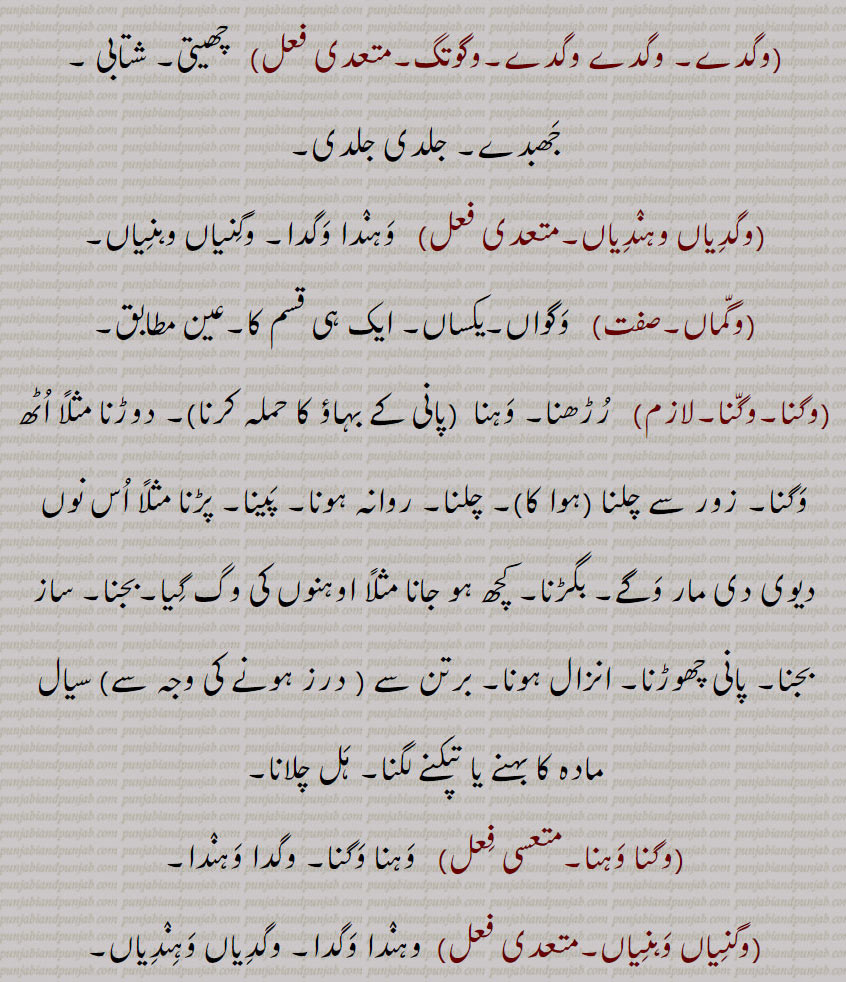 (وگدے۔ وگدے وگدے۔وگوتگ۔متعدی فعل) چھیتی۔ شتابی ۔
جَھبدے۔ جلدی جلدی۔
(وگدِیاں وہنْدِیاں۔متعدی فعل) وَہنْدا وَگدا۔ وگِنیاں وہنِیاں۔
(وگّماں۔صفت) وَگواں۔یکساں۔ ایک ہی قسم کا۔عین مطابق۔
(وگنا۔وگّنا۔لازم) رُڑھنا۔ وَہنا (پانی کے بہاؤ کا حملہ کرنا)۔ دوڑنا مثلًا اُٹھ
وَگنا۔ زور سے چلنا (ہوا کا)۔ چلنا۔ روانہ ہونا۔ پَینا۔ پڑنا مثلًا اُس نوں
دیوی دی مار وَگے۔ بگڑنا۔ کچھ ہو جانا مثلًا اوہنوں کی وگ گِیا۔بجنا۔ ساز
بجنا۔ پانی چھوڑنا۔ انزال ہونا۔ برتن سے ( درز ہونے کی وجہ سے) سیال
مادہ کا بہنے یا ٹپکنے لگنا۔ ہَل چلانا۔
(وگنا وَہنا۔متعسی فِعل) وَہنا وَگنا۔ وگدا وَہنْدا۔
(وگنِیاں وَہنِیاں۔متعدی فعل) وہنْدا وَگدا۔ وگدِیاں وَہِنْدِیاں۔